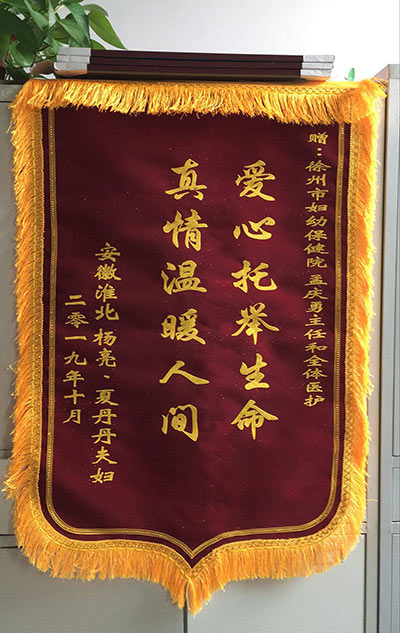 赠：徐州市妇幼保健院 孟庆勇主任和全体医护
爱心托举生命
真情温暖人间
安徽淮北 杨亮·夏丹丹夫妇
二零一九年十月